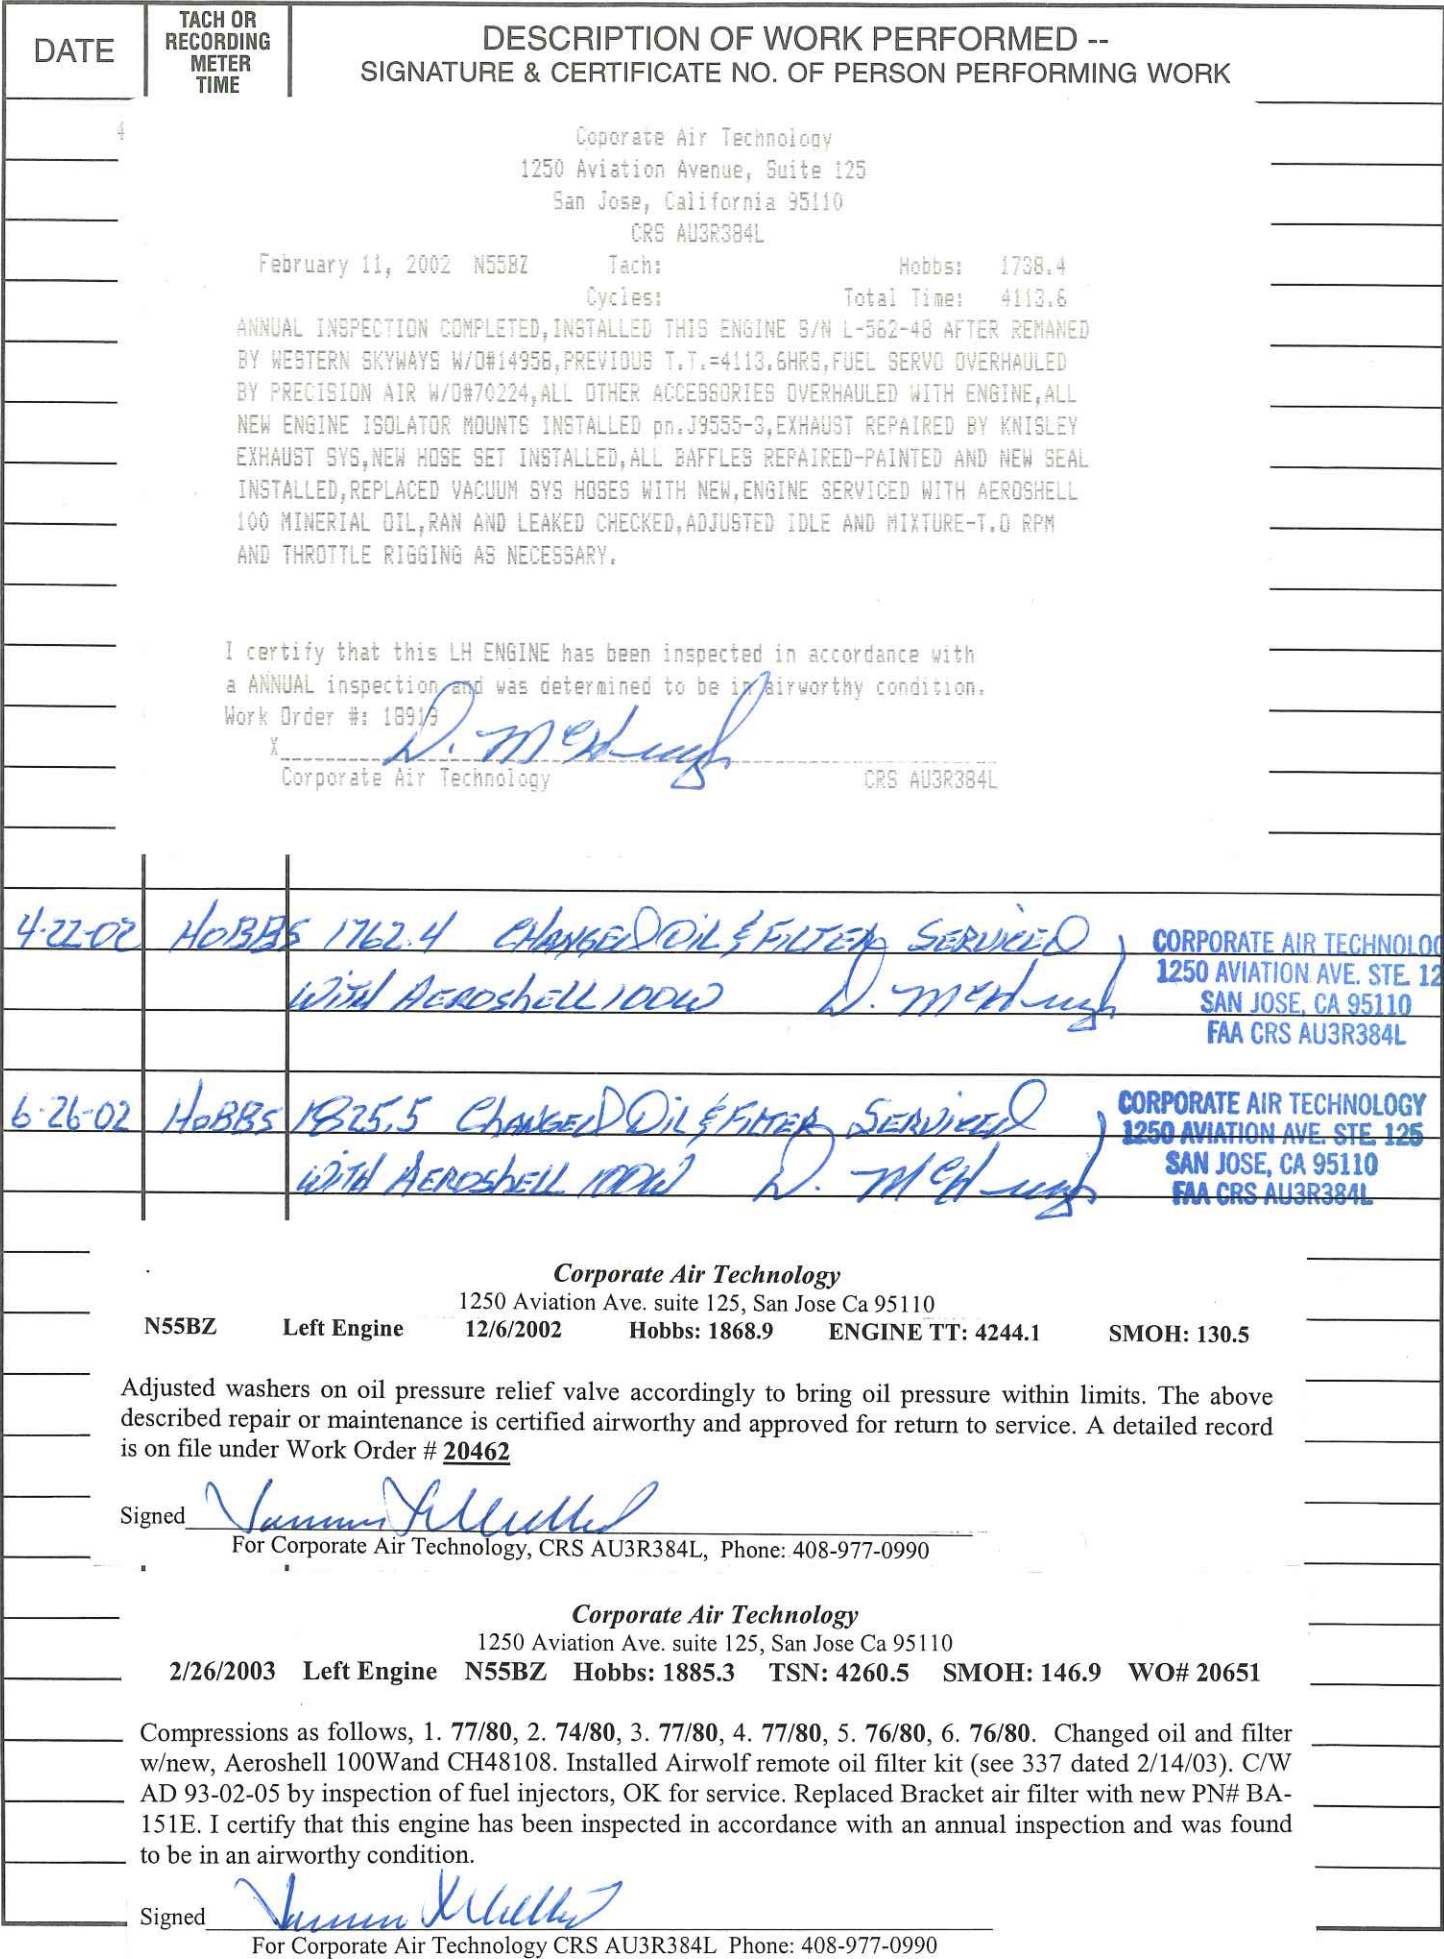 DATE
TACH OR
RECORDING
METER
TIME
DESCRIPTION OF WORK PERFORMED --
SIGNATURE & CERTIFICATE NO. OF PERSON PERFORMING WORK
4
Coporate Air Technology
1250 Aviation Avenue, Suite 125
San Jose, California 95110
CRS AU3R384L
February 11, 2002 N55BZ Tach: Hobbs: 1738.4
Cycles: Total Time: 4113.6
ANNUAL INSPECTION COMPLETED,INSTALLED THIS ENGINE S/N L-562-48 AFTER REMANED
BY WESTERN SKYWAYS W/O#14958,PREVIOUS T.T.=4113.6HRS,FUEL SERVO OVERHAULED
BY PRECISION AIR W/O#70224,ALL OTHER ACCESSORIES OVERHAULED WITH ENGINE,ALL
NEW ENGINE ISOLATOR MOUNTS INSTALLED pn.J9555-3,EXHAUST REPAIRED BY KNISLEY
EXHAUST SYS,NEW HOSE SET INSTALLED,ALL BAFFLES REPAIRED-PAINTED AND NEW SEAL
INSTALLED,REPLACED VACUUM SYS HOSES WITH NEW,ENGINE SERVICED WITH AEROSHELL
100 MINERIAL OIL,RAN AND LEAKED CHECKED,ADJUSTED IDLE AND MIXTURE-T.O RPM
AND THROTTLE RIGGING AS NECESSARY.
I certify that this LH ENGINE has been inspected in accordance with
a ANNUAL inspection and was determined to be in airworthy condition.
Work Order #: 18919
X D. McHugh
Corporate Air Technology CRS AU3R384L
4-22-02 HOBBS 1762.4 CHANGED OIL & FILTER SERVICED
WITH AEROSHELL 100W D. McHugh
CORPORATE AIR TECHNOLOG
1250 AVIATION AVE. STE. 12
SAN JOSE, CA 95110
FAA CRS AU3R384L
6-26-02 HOBBS 1825.5 CHANGED OIL & FILTER SERVICED
WITH AEROSHELL 100W D. McHugh
CORPORATE AIR TECHNOLOGY
1250 AVIATION AVE. STE. 125
SAN JOSE, CA 95110
FAA CRS AU3R384L
Corporate Air Technology
1250 Aviation Ave. suite 125, San Jose Ca 95110
N55BZ Left Engine 12/6/2002 Hobbs: 1868.9 ENGINE TT: 4244.1 SMOH: 130.5
Adjusted washers on oil pressure relief valve accordingly to bring oil pressure within limits. The above
described repair or maintenance is certified airworthy and approved for return to service. A detailed record
is on file under Work Order # 20462
Signed
For Corporate Air Technology, CRS AU3R384L, Phone: 408-977-0990
Corporate Air Technology
1250 Aviation Ave. suite 125, San Jose Ca 95110
2/26/2003 Left Engine N55BZ Hobbs: 1885.3 TSN: 4260.5 SMOH: 146.9 WO# 20651
Compressions as follows, 1. 77/80, 2. 74/80, 3. 77/80, 4. 77/80, 5. 76/80, 6. 76/80. Changed oil and filter
w/new, Aeroshell 100Wand CH48108. Installed Airwolf remote oil filter kit (see 337 dated 2/14/03). C/W
AD 93-02-05 by inspection of fuel injectors, OK for service. Replaced Bracket air filter with new PN# BA-
151E. I certify that this engine has been inspected in accordance with an annual inspection and was found
to be in an airworthy condition.
Signed
For Corporate Air Technology CRS AU3R384L Phone: 408-977-0990